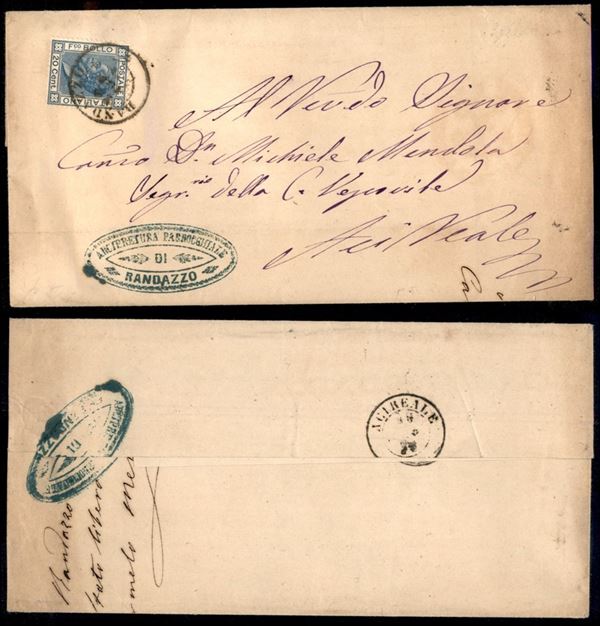 F.co BOLLO
POSTALE
ITALIANO
20 Cent.
RANDAZZO
Al Vendo Signore
Canco Dn Michiele Mendola
Segrrio della C. Vescovile
Aci Reale
ARCIPRETURA PARROCCHIALE
DI
RANDAZZO
Ca
ACIREALE
DI
Randazzo
stato libero